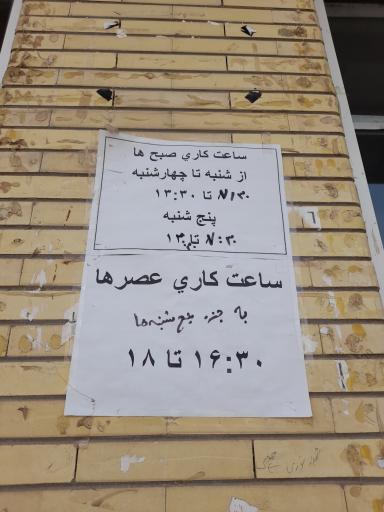 ساعت كاري صبح ها
از شنبه تا چهارشنبه
۷/۳۰ تا ۱۳:۳۰
پنج شنبه
۷:۳۰ تا ۱۳
ساعت كاري عصرها
به جزء پنج شنبه ها
۱۶:۳۰ تا ۱۸